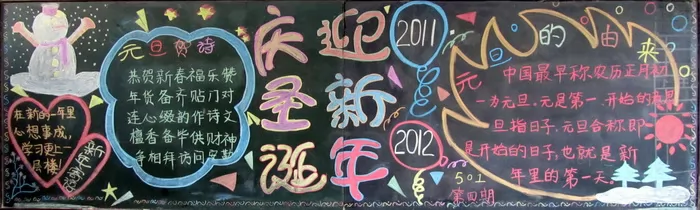 元旦贺诗
恭贺新春福乐餮
年货备齐贴门对
连心缀的作诗文
檀香备毕供财神
在新的一年里
心想事成,
学习更上一
层楼!
新年寄语
庆圣诞
迎新年
2011
2012
元旦的由来
中国最早称农历正月初
一为元旦,元是第一、开始的
旦指日子,元旦合称即
是开始的日子,也就是新
年里的第一天。
501
第四期